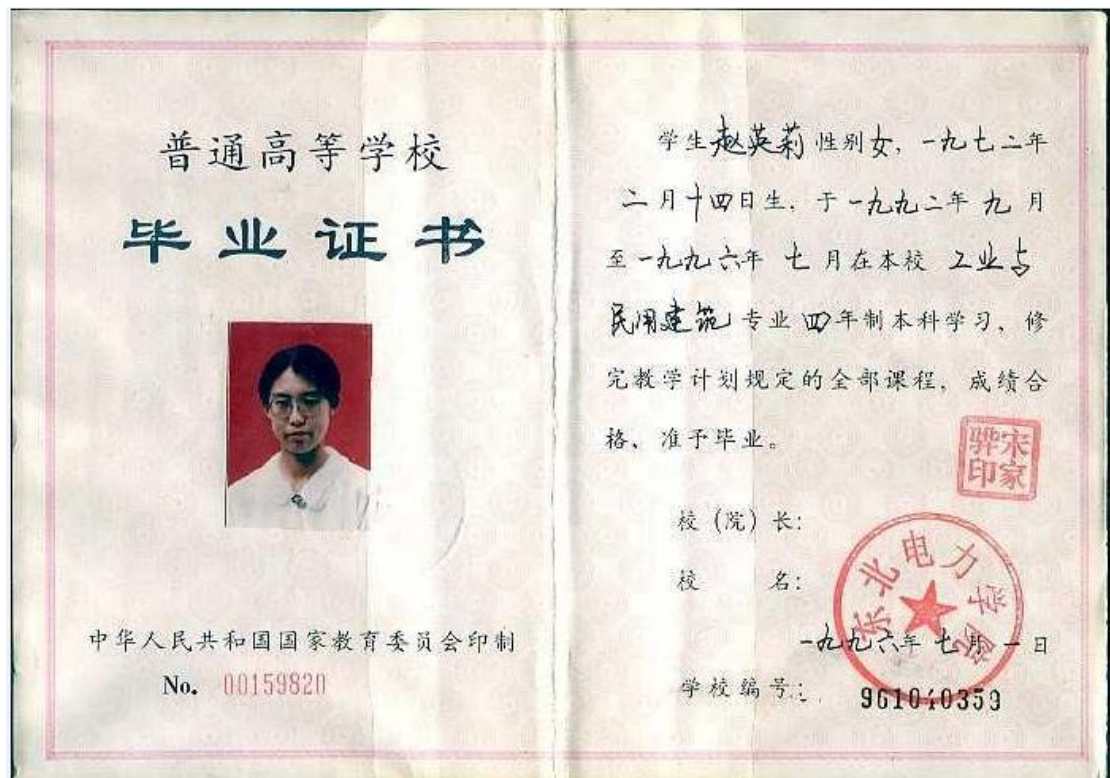 普通高等学校
毕业证书
中华人民共和国国家教育委员会印制
No. 00159820
学生赵英莉性别女，一九七二年
二月十四日生，于一九九二年九月
至一九九六年七月在本校工业与
民用建筑专业四年制本科学习，修
完教学计划规定的全部课程，成绩合
格，准予毕业。
宋家骅印
校（院）长：
校名：
东北电力学院
一九九六年七月一日
学校编号： 961040359